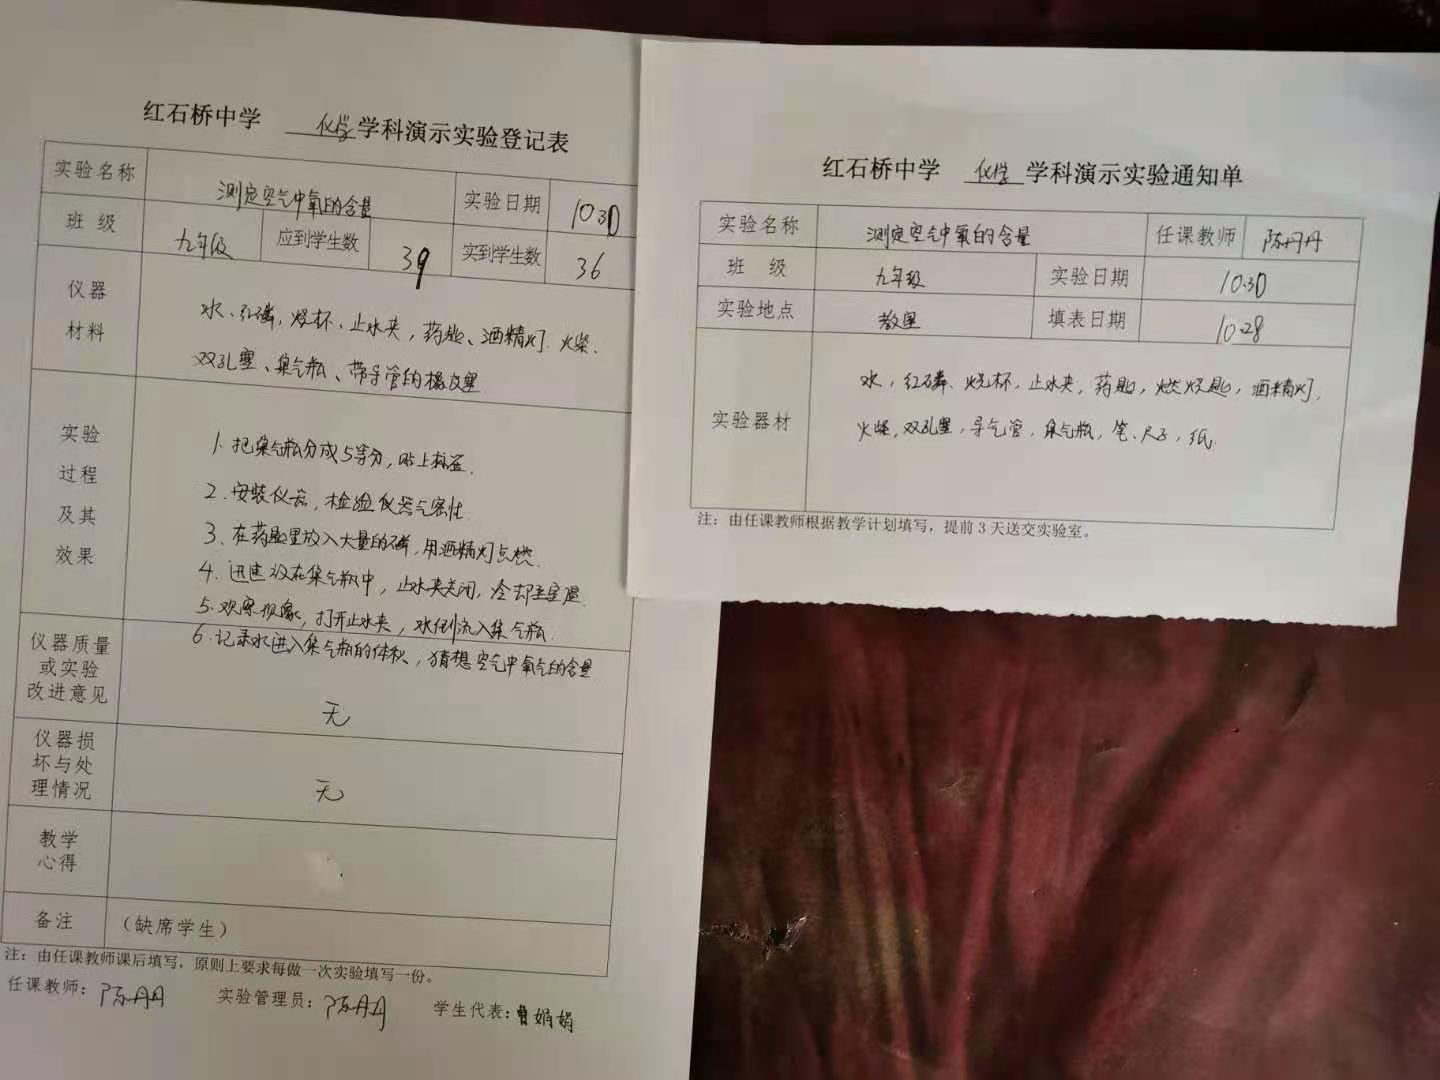 红石桥中学 化学学科演示实验登记表
实验名称 测定空气中氧的含量 实验日期 10.30
班 级 九年级 应到学生数 39 实到学生数 36
仪器
材料
水、红磷,烧杯、止水夹,药匙、酒精灯、火柴、
双孔塞、集气瓶、带导管的橡皮塞
实验
过程
及其
效果
1. 把集气瓶分成5等分,贴上标签.
2. 安装仪器,检验仪器气密性
3. 在药匙里放入大量的磷,用酒精灯点燃.
4. 迅速没在集气瓶中,止水夹关闭,冷却至室温
5. 观察现象,打开止水夹,水倒流入集气瓶.
6. 记录水进入集气瓶的体积,猜想空气中氧气的含量
仪器质量
或实验
改进意见
无
仪器损
坏与处
理情况
无
教学
心得
备注 (缺席学生)
注:由任课教师课后填写,原则上要求每做一次实验填写一份。
任课教师:陈丹丹 实验管理员:陈丹丹 学生代表:曹娟娟
红石桥中学 化学学科演示实验通知单
实验名称 测定空气中氧的含量 任课教师 陈丹丹
班 级 九年级 实验日期 10.30
实验地点 教室 填表日期 10.28
实验器材
水,红磷、烧杯,止水夹,药匙,燃烧匙,酒精灯,
火柴,双孔塞,导气管,集气瓶,笔、尺子,纸.
注:由任课教师根据教学计划填写,提前3天送交实验室。